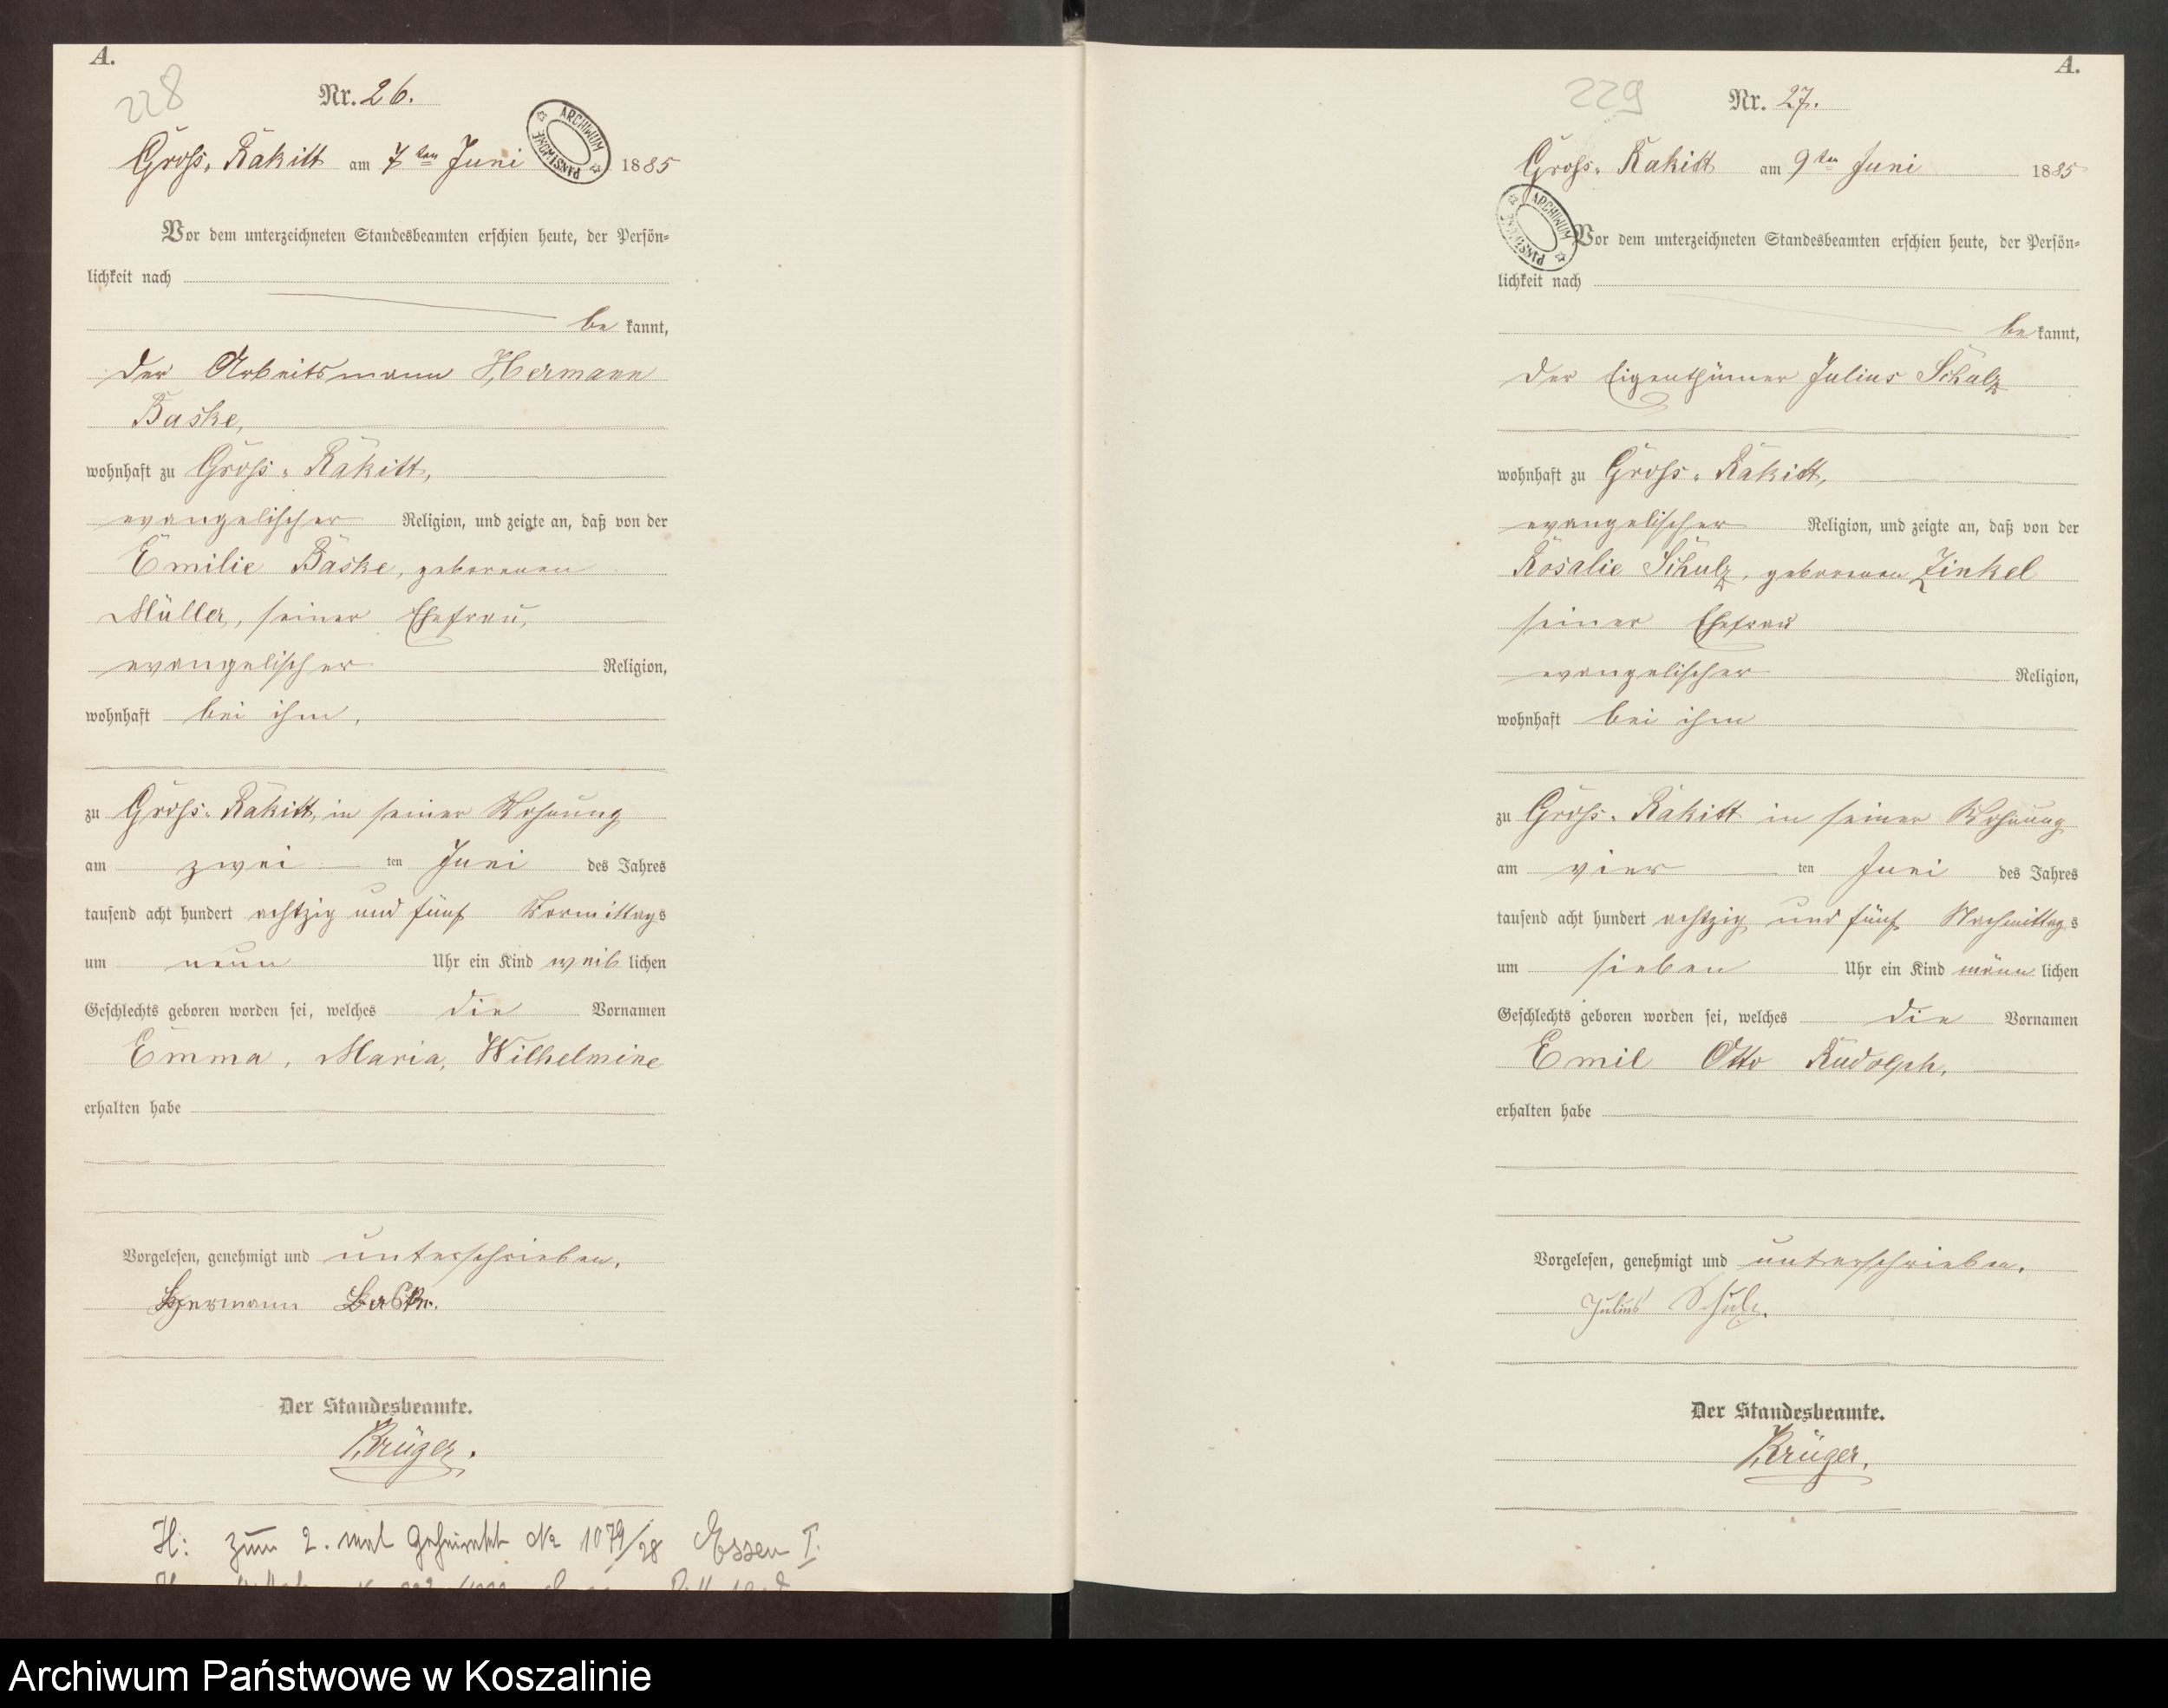 A.
228
Nr. 26.
Groß-Rakitt am 7ten Juni 1885
ARCHIWUM PAŃSTWOWE
Vor dem unterzeichneten Standesbeamten erschien heute, der Persön-
lichkeit nach
bekannt,
der Arbeitsmann Hermann
Baske,
wohnhaft zu Groß-Rakitt,
evangelischer Religion, und zeigte an, daß von der
Emilie Baske, geborenen
Müller, seiner Ehefrau,
evangelischer Religion,
wohnhaft bei ihm,
zu Groß-Rakitt, in seiner Wohnung
am zwei ten Juni des Jahres
tausend acht hundert achtzig und fünf Vormittags
um neun Uhr ein Kind weiblichen
Geschlechts geboren worden sei, welches die Vornamen
Emma, Maria, Wilhelmine
erhalten habe
Vorgelesen, genehmigt und unterschrieben.
Hermann Baske.
Der Standesbeamte.
Krüger.
H: zum 2. mal geheiratet No 1079/28 Essen I.
A.
229
Nr. 27.
Groß-Rakitt am 9ten Juni 1885
ARCHIWUM PAŃSTWOWE
Vor dem unterzeichneten Standesbeamten erschien heute, der Persön-
lichkeit nach
bekannt,
der Eigenthümer Julius Schulz
wohnhaft zu Groß-Rakitt,
evangelischer Religion, und zeigte an, daß von der
Rosalie Schulz, geborenen Zinkel
seiner Ehefrau
evangelischer Religion,
wohnhaft bei ihm
zu Groß-Rakitt in seiner Wohnung
am vier ten Juni des Jahres
tausend acht hundert achtzig und fünf Nachmittags
um sieben Uhr ein Kind männlichen
Geschlechts geboren worden sei, welches die Vornamen
Emil Otto Rudolph,
erhalten habe
Vorgelesen, genehmigt und unterschrieben.
Julius Schulz.
Der Standesbeamte.
Krüger.
Archiwum Państwowe w Koszalinie